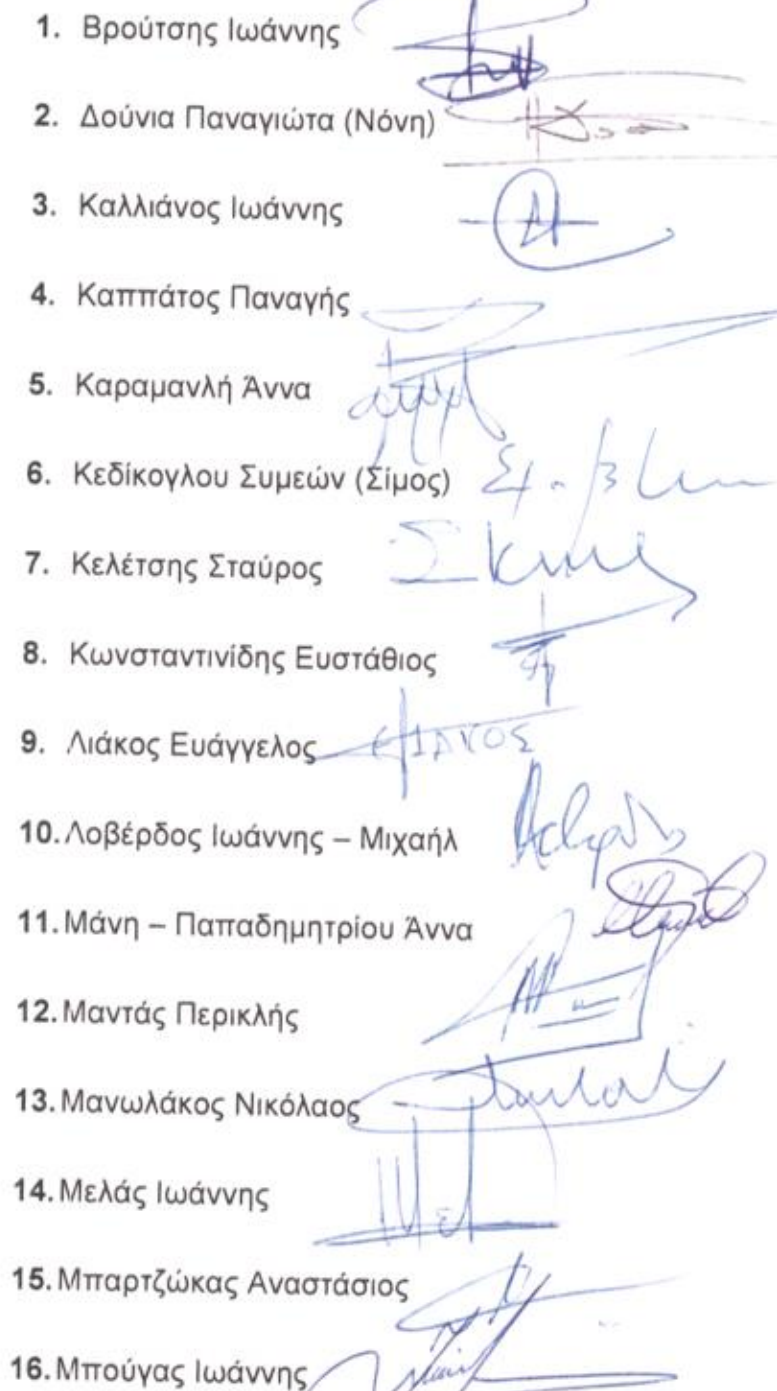 1. Βρούτσης Ιωάννης
2. Δούνια Παναγιώτα (Νόνη)
3. Καλλιάνος Ιωάννης
4. Καππάτος Παναγής
5. Καραμανλή Άννα
6. Κεδίκογλου Συμεών (Σίμος)
7. Κελέτσης Σταύρος
8. Κωνσταντινίδης Ευστάθιος
9. Λιάκος Ευάγγελος
10. Λοβέρδος Ιωάννης – Μιχαήλ
11. Μάνη – Παπαδημητρίου Άννα
12. Μαντάς Περικλής
13. Μανωλάκος Νικόλαος
14. Μελάς Ιωάννης
15. Μπαρτζώκας Αναστάσιος
16. Μπούγας Ιωάννης